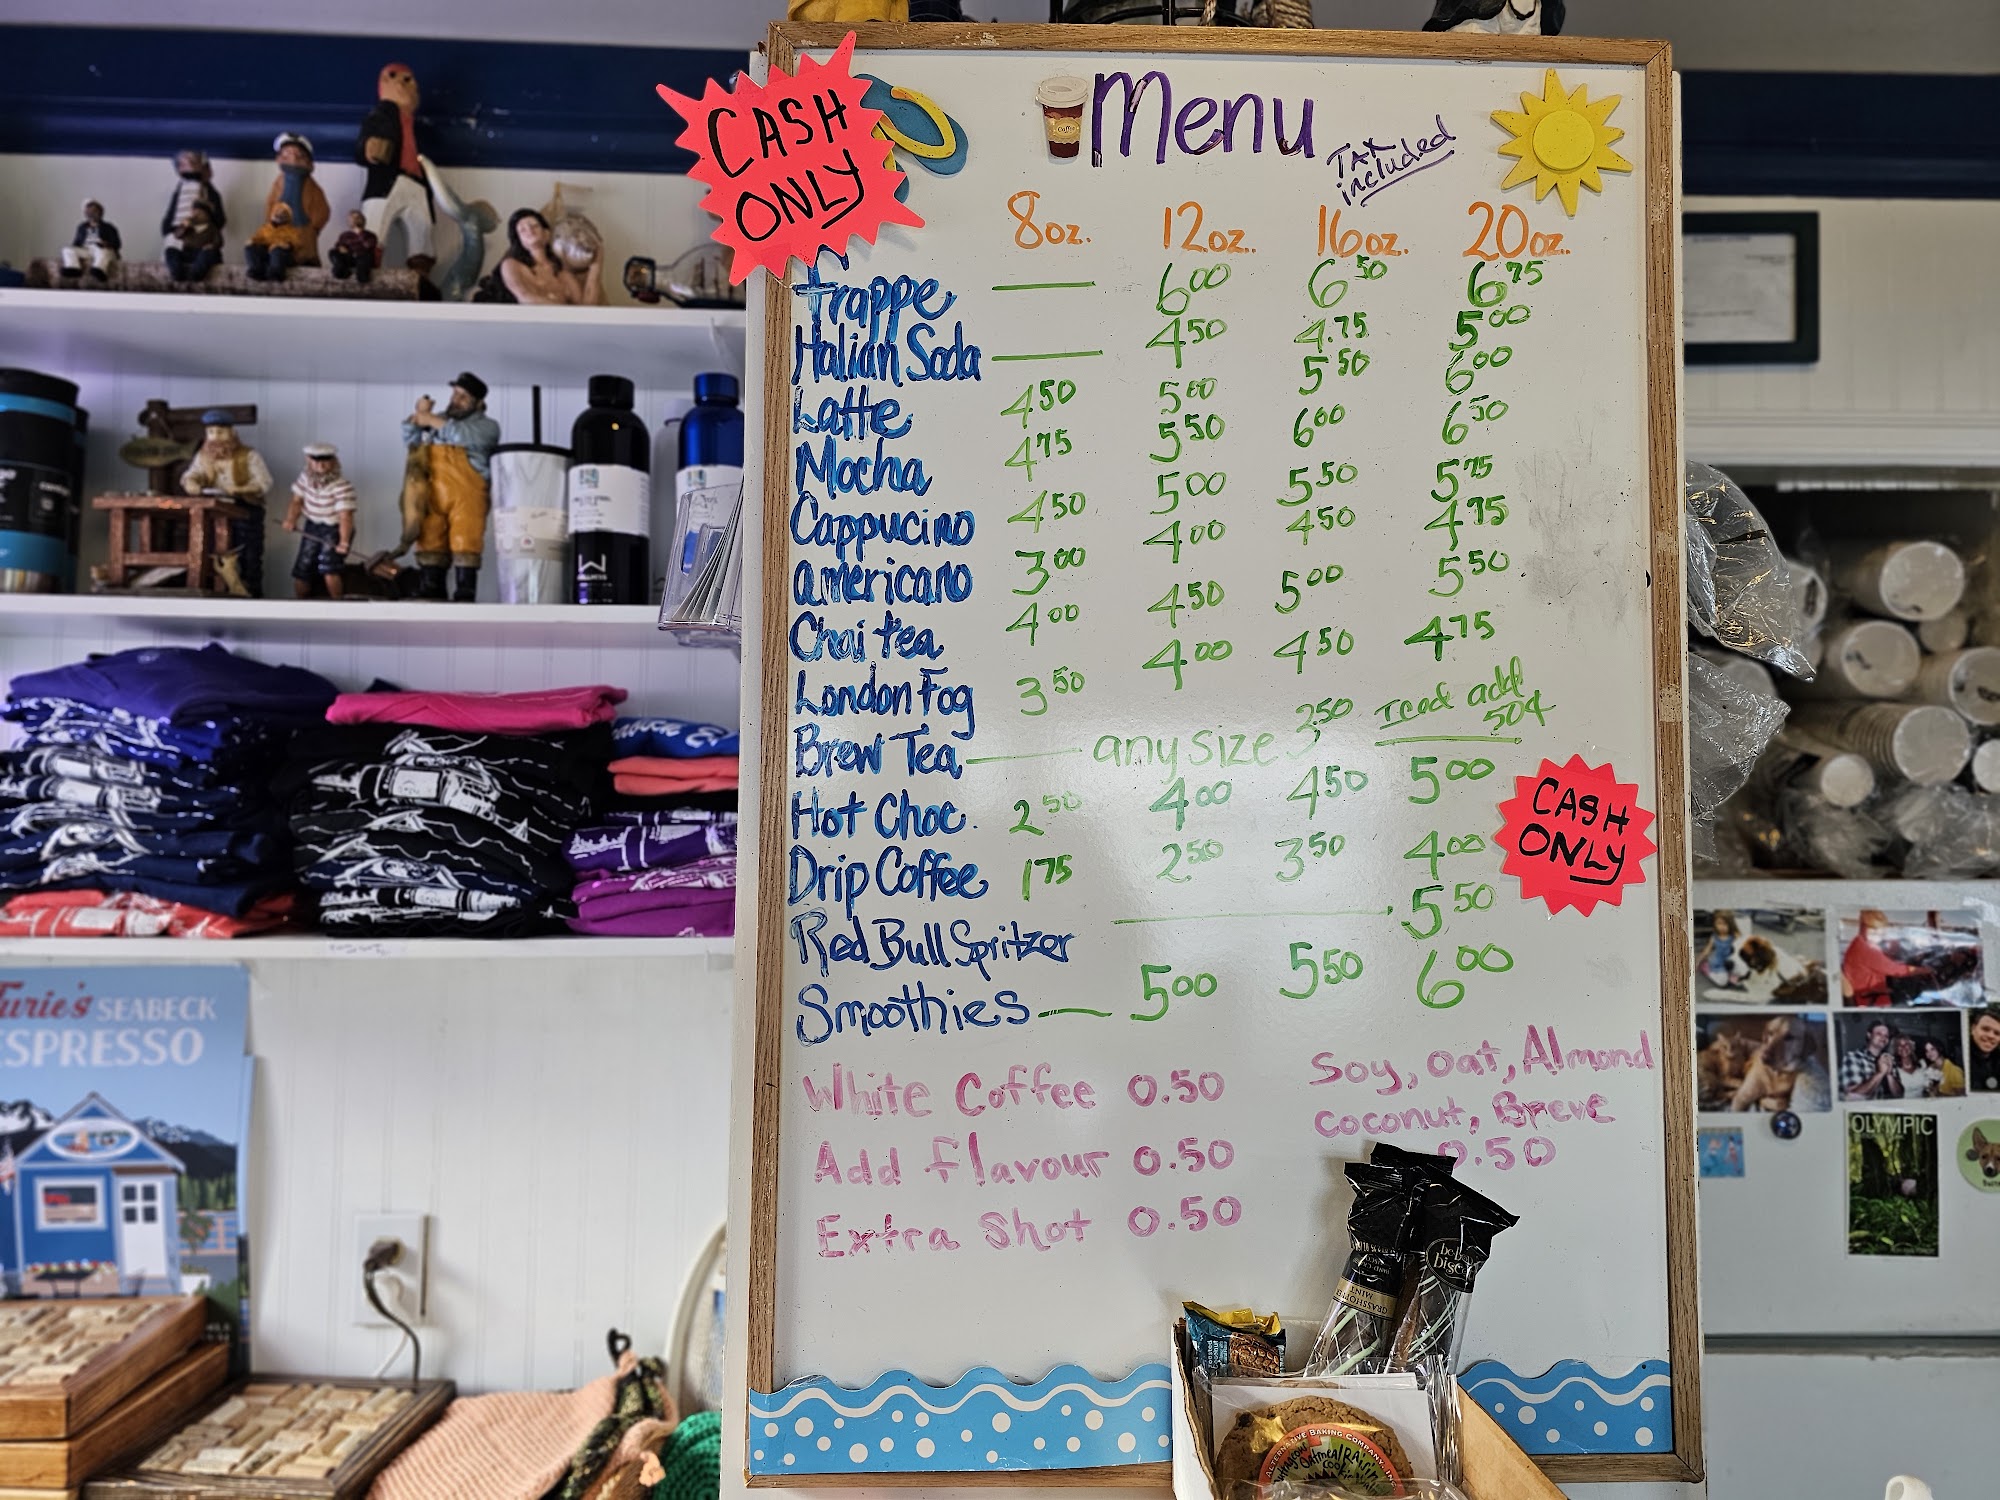 CASH
ONLY
Menu
TAX
included
8oz. 12oz. 16oz. 20oz.
Frappe — 6.00 6.50 6.75
Italian Soda — 4.50 4.75 5.00
Latte 4.50 5.00 5.50 6.00
Mocha 4.75 5.50 6.00 6.50
Cappucino 4.50 5.00 5.50 5.75
americano 3.00 4.00 4.50 4.75
Chai tea 4.00 4.50 5.00 5.50
London Fog 3.50 4.00 4.50 4.75
Brew Tea — any size 3.50
Iced add
50¢
Hot Choc. 2.50 4.00 4.50 5.00
Drip Coffee 1.75 2.50 3.50 4.00
Red Bull Spritzer — 5.50
Smoothies — 5.00 5.50 6.00
CASH
ONLY
White Coffee 0.50
Add flavour 0.50
Extra Shot 0.50
Soy, oat, Almond
coconut, Breve
0.50
SEABECK
ESPRESSO
OLYMPIC
GRASSHOPPER
MINT
ALTERNATIVE BAKING COMPANY, INC.
Oatmeal Raisin
cookie